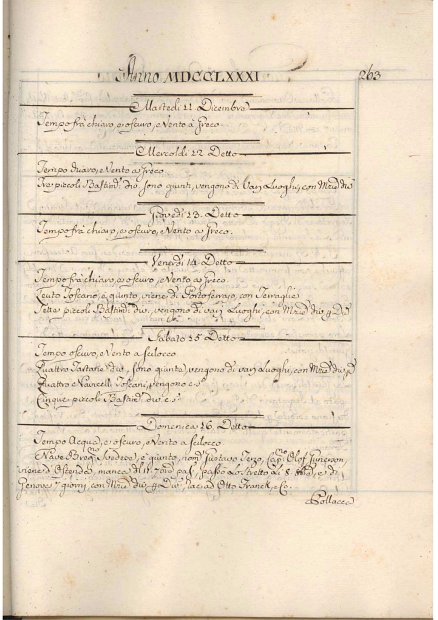 Anno MDCCLXXXI 263
Martedi 11 Dicembre
Tempo frà chiaro, e oscuro, e Vento à Greco
Mercoldi 12 Detto
Tempo e Vento a Greco
Tre piccoli Bastim.ti div. sono giunti, vengono di Varj Luoghi, con
Giovedi 13 Detto
Tempo frà chiaro, e oscuro, e Vento a Greco
Venerdi 14 Detto
Tempo frà chiaro, e oscuro, e Vento a Greco
Leuto Toscano, è giunto, viene di Portoferrajo, con
Sette piccoli Bastim.ti div. vengono di varj Luoghi, con
Sabato 15 Detto
Tempo oscuro, e Vento a scilocco
Quattro Tartane div. sono giunte, vengono di varj Luoghi, con
Quattro Navicelli Toscani, vengono
Cinque piccoli Bastim.ti div.
Domenica 16 Detto
Tempo Acqua, e oscuro, e Vento a scilocco
Nave Svedese, è giunto, nom.ta Gustavo Terzo, Cap. Olof
viene di Ostenda, manca di 17 passò Lo stretto
Genova 7 giorni, con Otto Franck, e Co.